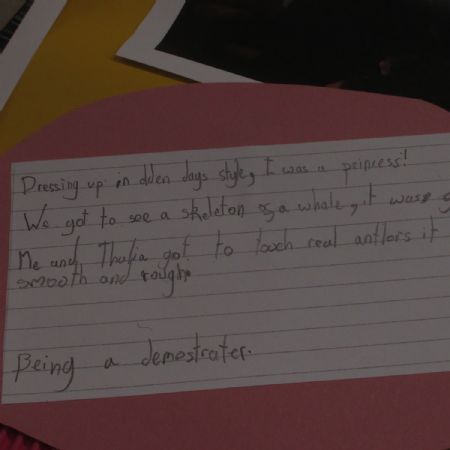 Dressing up in olden days style, I was a princess!
We got to see a skeleton of a whale, it was
Me and Thalia got to touch real antlors it
smooth and rough.
Being a demestrater.